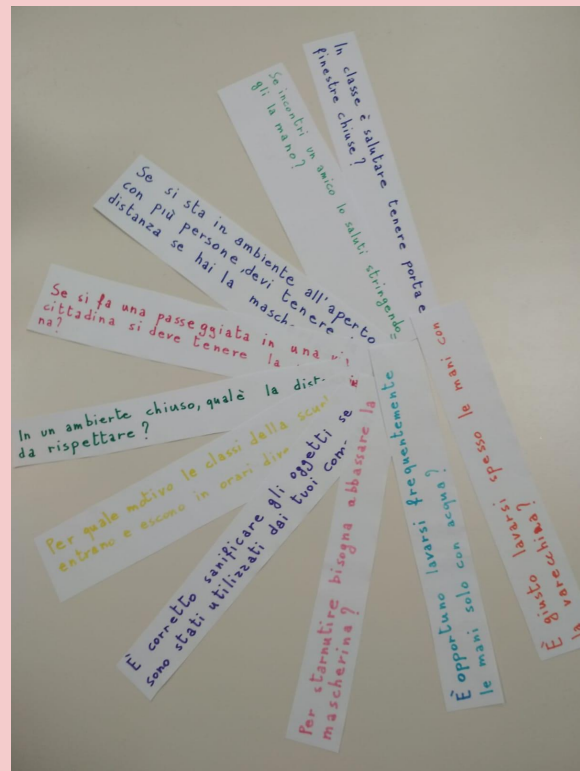 In classe è salutare tenere porta e
finestre chiuse?
Se incontri un amico lo saluti stringendo=
gli la mano?
Se si sta in ambiente all'aperto
con più persone, devi tenere
distanza se hai la masch-
Se si fa una passeggiata in una
cittadina si deve tenere la
na?
In un ambierte chiuso, qualè la dist-
da rispettare?
Per quale motivo le classi della
entrano e escono in orari
È corretto sanificare gli oggetti se
sono stati utilizzati dai tuoi com-
Per starnutire bisogna abbassare la
mascherina?
È opportuno lavarsi frequentemente
le mani solo con acqua?
È giusto lavarsi spesso le mani con
la varecchina?